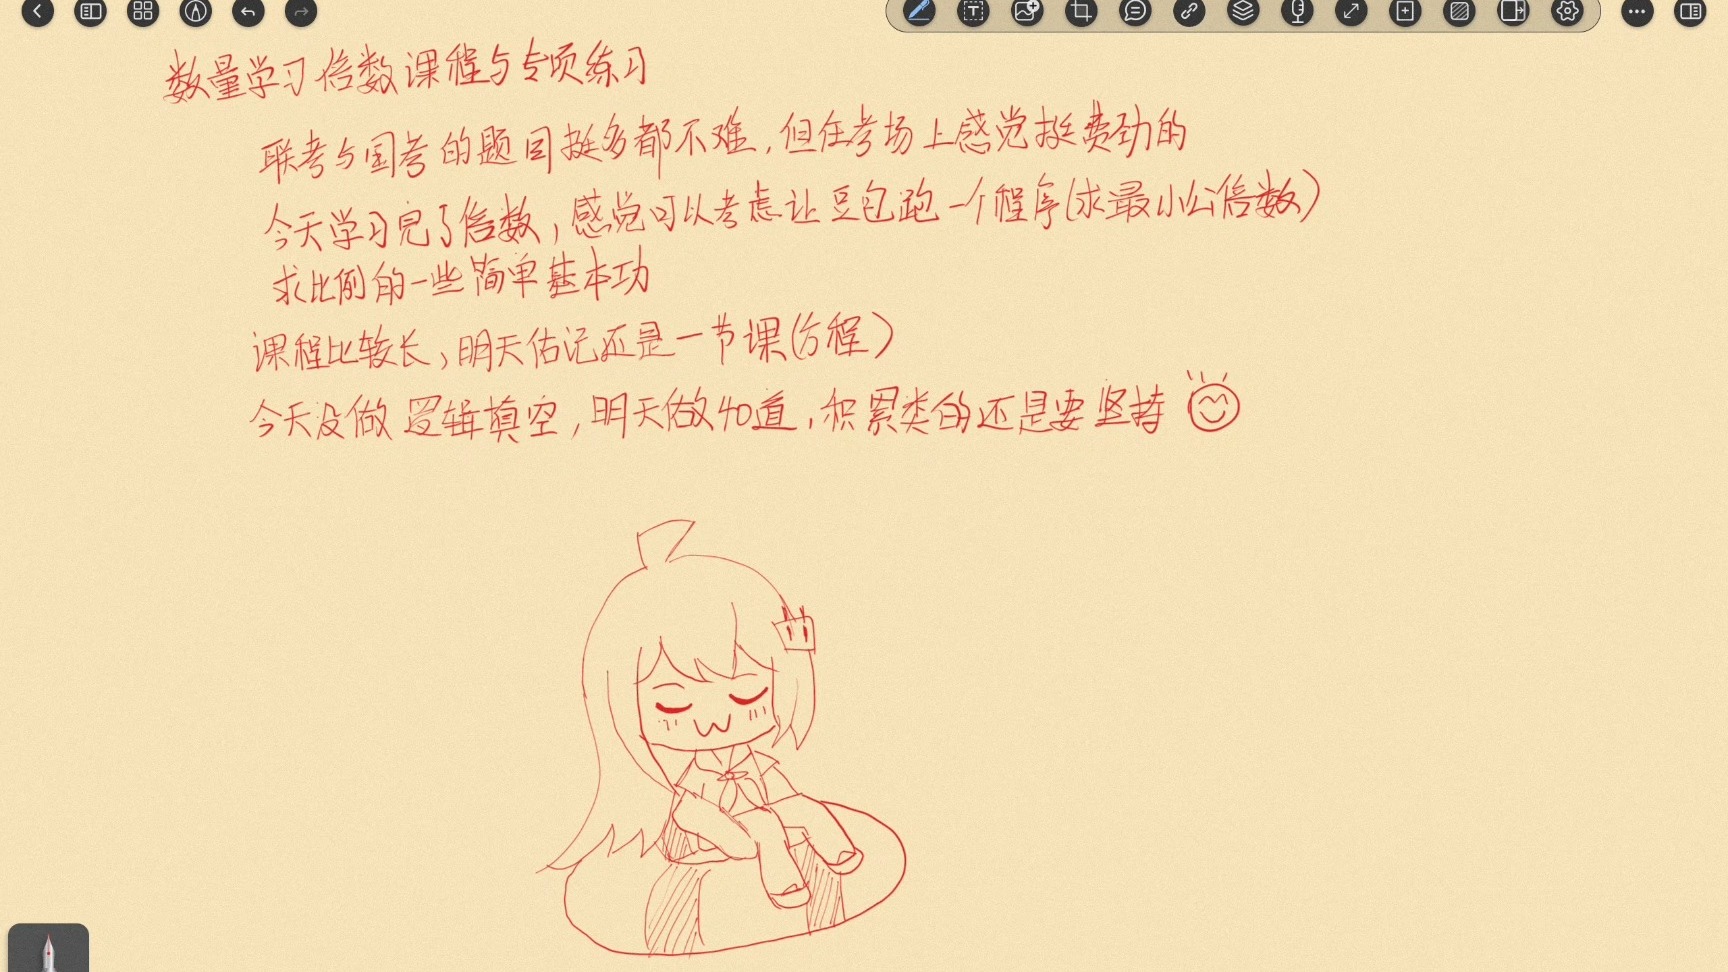 数量学习倍数课程与专项练习
联考与国考的题目挺多都不难,但在考场上感觉挺费劲的
今天学习完了倍数,感觉可以考虑让豆包跑一个程序(求最小公倍数)
求比例的一些简单基本功
课程比较长,明天估记还是一节课(方程)
今天没做逻辑填空,明天做40道,积累类的还是要坚持